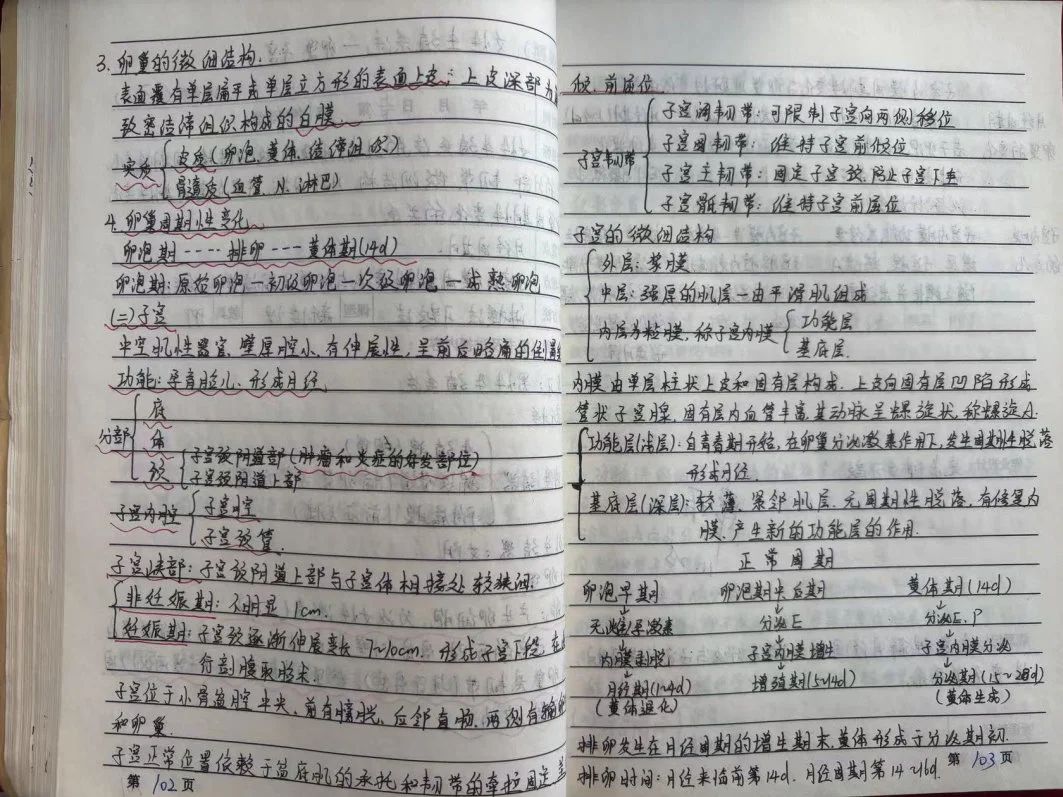 3. 卵巢的微细结构.
表面覆有单层扁平或单层立方形的表面上皮; 上皮深部为
致密结缔组织构成的白膜.
实质 皮质(卵泡、黄体、结缔组织)
髓质(血管、N、淋巴)
4. 卵巢周期性变化
卵泡期----排卵---黄体期(14d)
卵泡期: 原始卵泡—初级卵泡—次级卵泡—成熟卵泡
(二)子宫
中空肌性器官、壁厚腔小、有伸展性, 呈前后略扁的倒置
功能: 孕育胎儿、形成月经.
分部 底
体
颈 子宫颈阴道部(肿瘤和炎症的好发部位)
子宫颈阴道上部
子宫内腔 子宫腔
子宫颈管.
子宫峡部: 子宫颈阴道上部与子宫体相接处较狭细.
非妊娠期: 不明显 1cm.
妊娠期: 子宫颈逐渐伸展变长 7~10cm. 形成子宫下段, 在此
行剖腹取胎术
子宫位于小骨盆腔中央, 前有膀胱, 后邻直肠, 两侧有输
和卵巢.
子宫正常位置依赖于盆底肌的承托和韧带的牵拉固定
第 102 页
倾、前屈位
子宫韧带 子宫阔韧带: 可限制子宫向两侧移位
子宫圆韧带: 维持子宫前倾位
子宫主韧带: 固定子宫颈, 防止子宫下垂
子宫骶韧带: 维持子宫前屈位
子宫的微细结构
外层: 浆膜
中层: 强厚的肌层—由平滑肌组成
内层为粘膜, 称子宫内膜 功能层
基底层.
内膜由单层柱状上皮和固有层构成. 上皮向固有层凹陷形成
管状子宫腺, 固有层内血管丰富其动脉呈螺旋状, 称螺旋A.
功能层(浅层): 自青春期开始, 在卵巢分泌激素作用下, 发生周期性脱落
形成月经.
基底层(深层): 较薄, 紧邻肌层. 无周期性脱落, 有修复内
膜, 产生新的功能层的作用.
正常周期
卵泡早期 卵泡期末后期 黄体期(14d)
无雌/孕激素 分泌E 分泌E、P
内膜剥脱 子宫内膜增生 子宫内膜分泌
月经期(1~4d) 增殖期(5~14d) 分泌期(15~28d)
(黄体退化) (黄体生成)
排卵发生在月经周期的增生期末, 黄体形成于分泌期初.
排卵时间: 月经来临前第14d. 月经周期第14~16d.
第 103 页